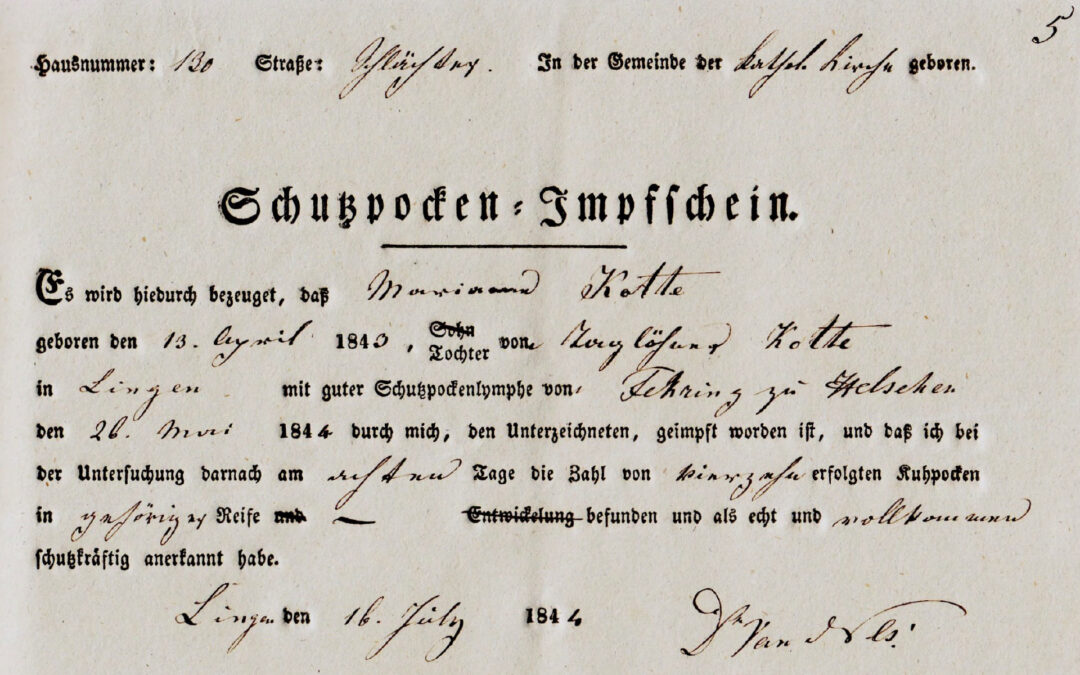 5
Hausnummer: 130 Straße: Schlächter. In der Gemeinde der kathol. Kirche geboren.
Schutzpocken-Impfschein.
Es wird hiedurch bezeuget, daß Mariann Kotte
geboren den 13. April 1843, Sohn Tochter von Taglöhner Kotte
in Lingen mit guter Schutzpockenlymphe von Fehring zu Helschen
den 26. Mai 1844 durch mich, den Unterzeichneten, geimpft worden ist, und daß ich bei
der Untersuchung darnach am achten Tage die Zahl von vierzehn erfolgten Kuhpocken
in gehöriger Reife und — Entwickelung befunden und als echt und vollkommen
schutzkräftig anerkannt habe.
Lingen den 16. July 1844 Dr